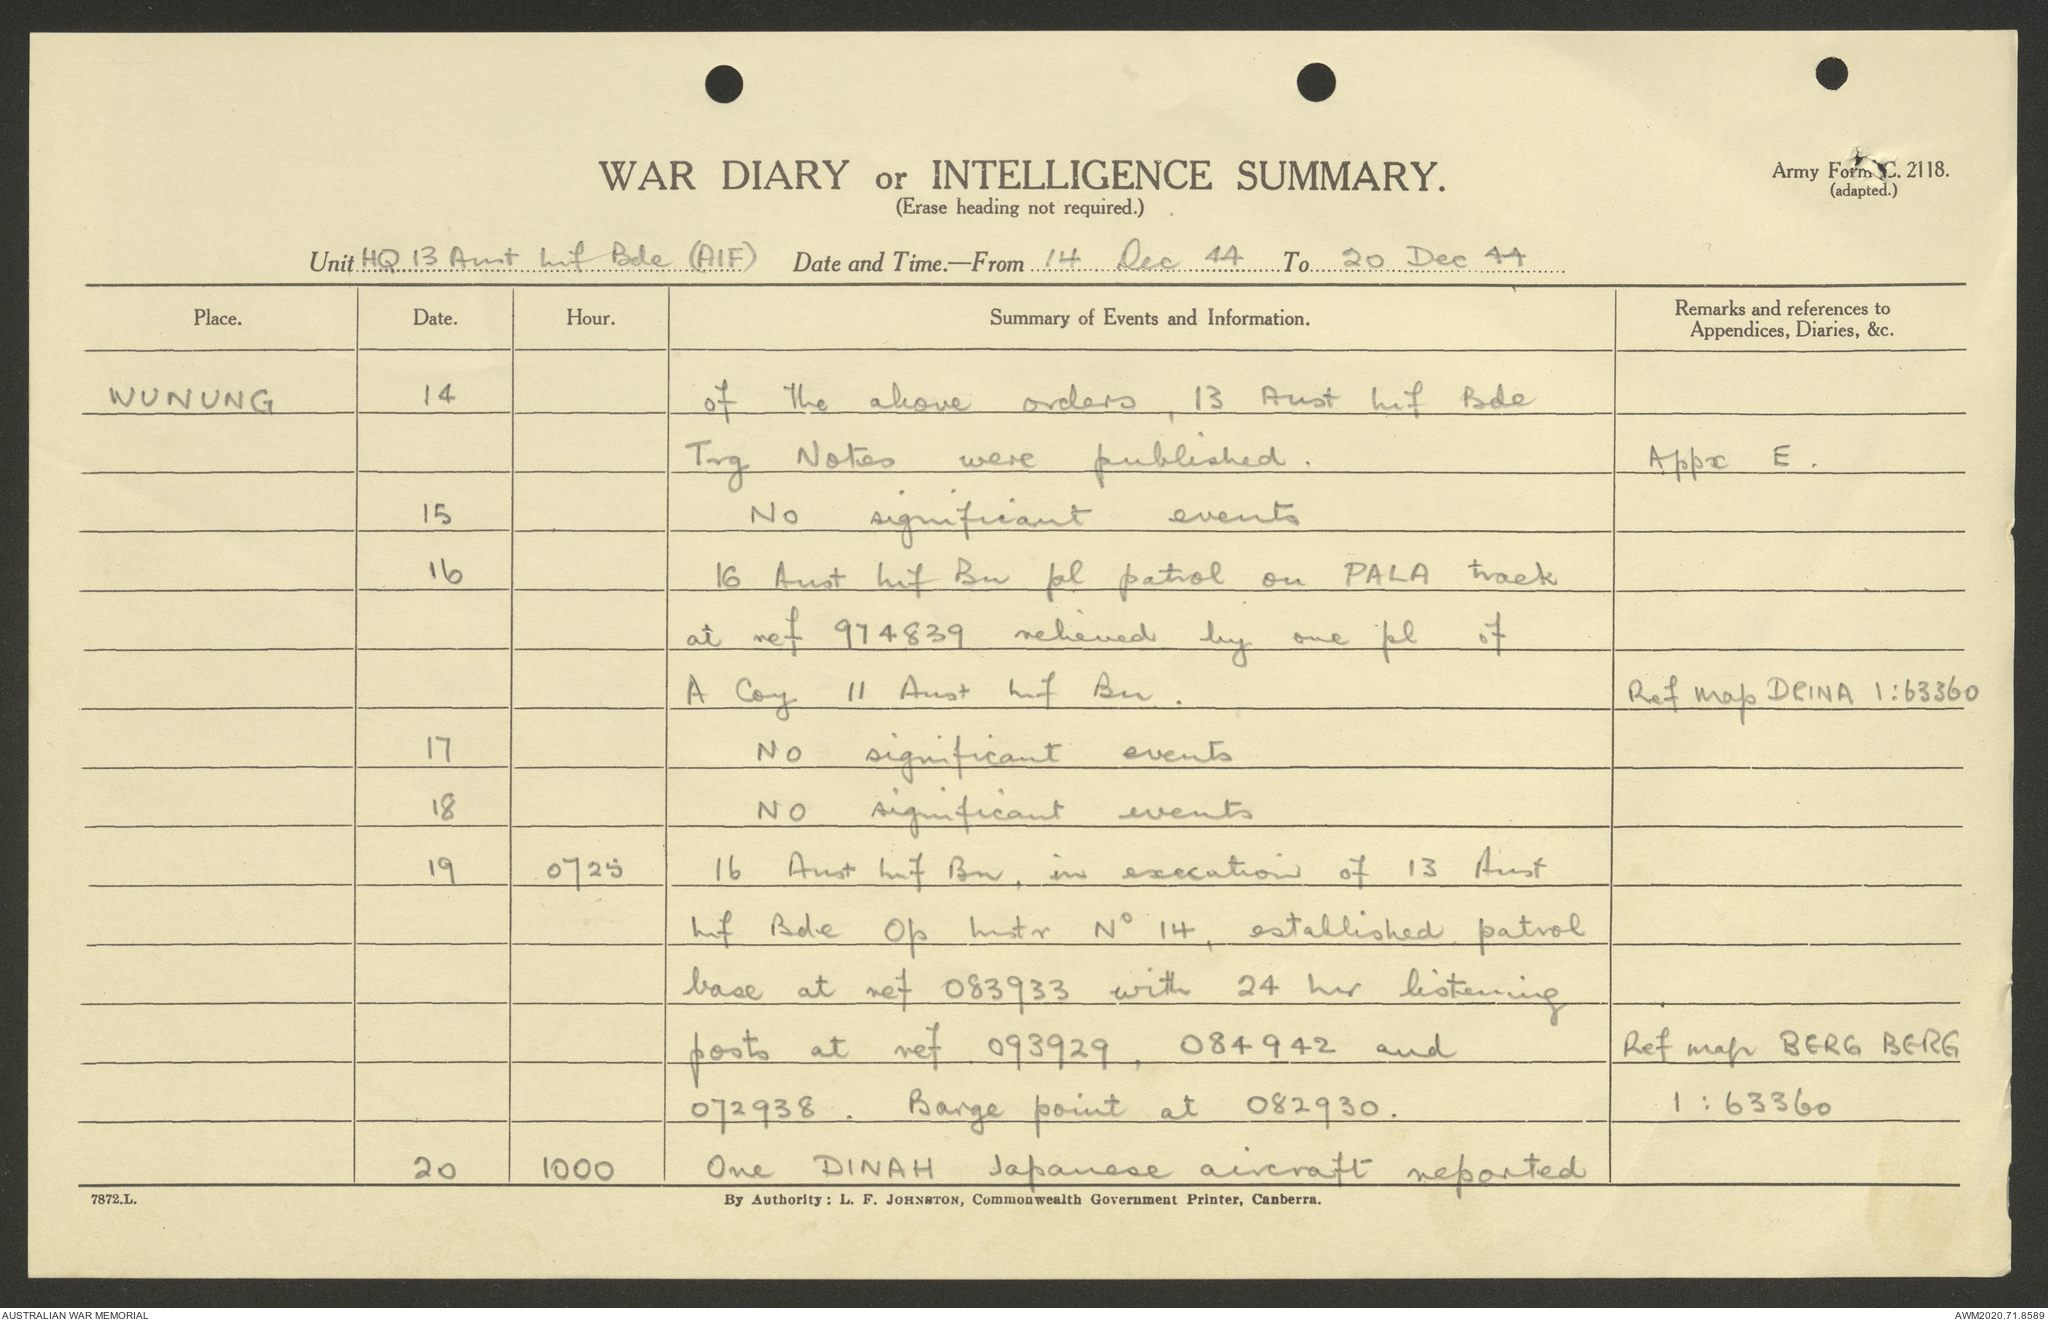 WAR DIARY or INTELLIGENCE SUMMARY.
(Erase heading not required.)
Army Form C. 2118.
(adapted.)
Unit HQ 13 Aust Inf Bde (AIF) Date and Time.—From 14 Dec 44 To 20 Dec 44
Place. Date. Hour. Summary of Events and Information. Remarks and references to Appendices, Diaries, &c.
WUNUNG 14 of the above orders, 13 Aust Inf Bde
Trg Notes were published. Appx E.
15 No significant events
16 16 Aust Inf Bn pl patrol on PALA track
at ref 974839 relieved by one pl of
A Coy 11 Aust Inf Bn. Ref map DRINA 1:63360
17 No significant events
18 No significant events
19 0725 16 Aust Inf Bn, in execution of 13 Aust
Inf Bde Op Instr No 14, established patrol
base at ref 083933 with 24 hr listening
posts at ref 093929, 084942 and Ref map BERG BERG
072938. Barge point at 082930. 1:63360
20 1000 One DINAH Japanese aircraft reported
7872.L. By Authority: L. F. JOHNSTON, Commonwealth Government Printer, Canberra.
AUSTRALIAN WAR MEMORIAL AWM2020.71.8589